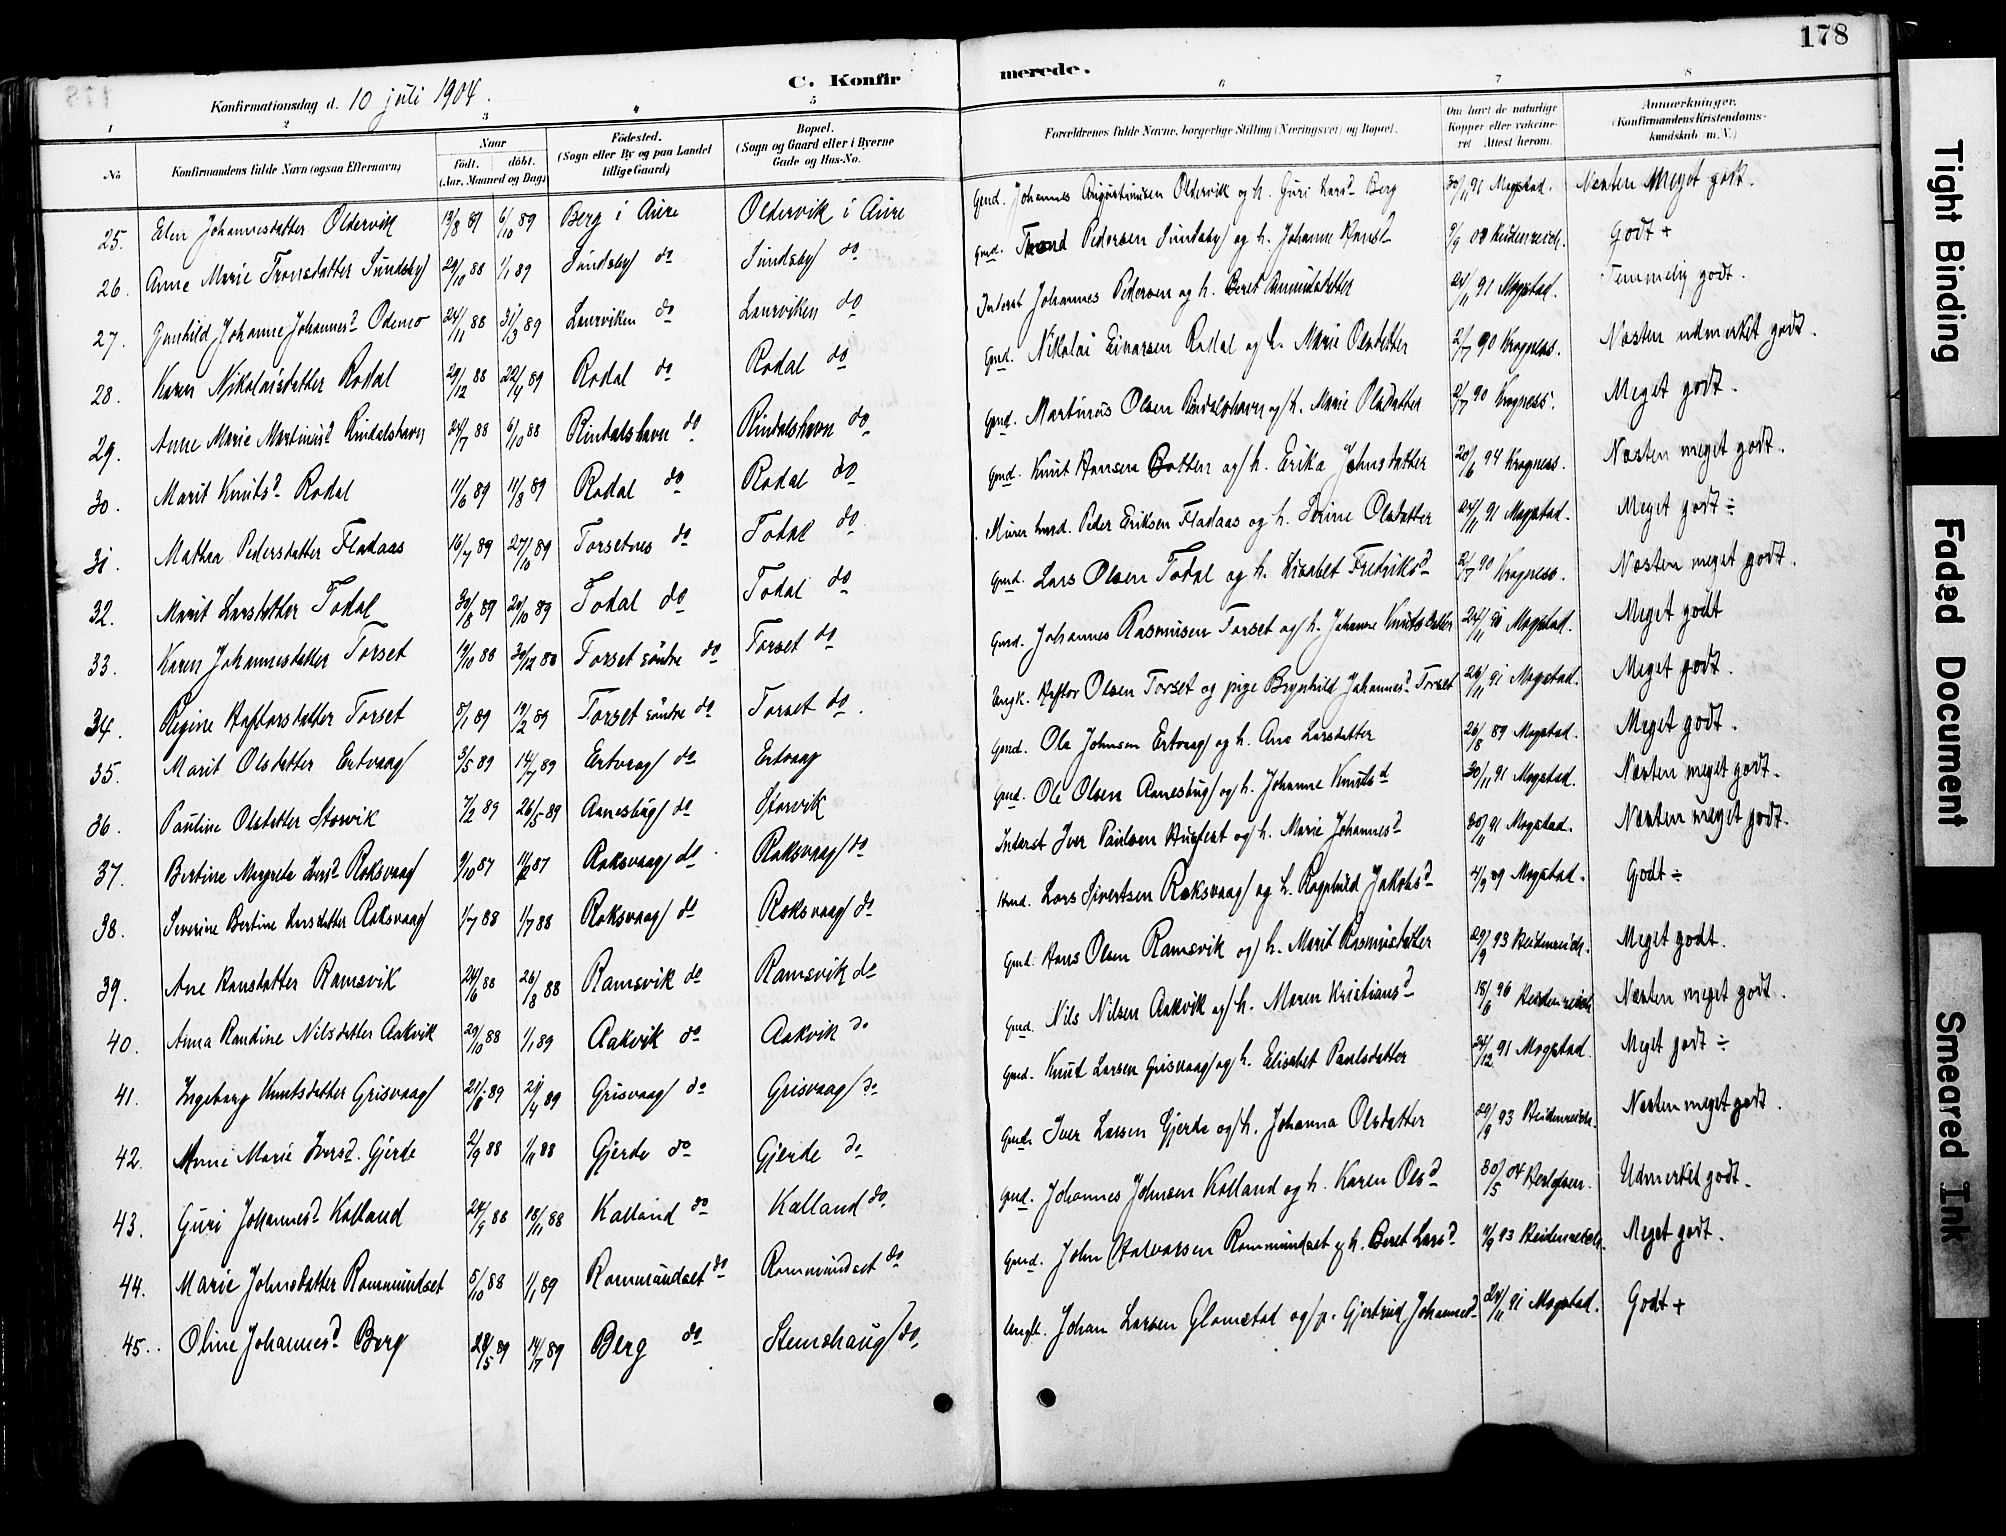 178
C. Konfirmerede.
Konfirmationsdag d. 10 juli 1904.
1 2 3 4 5 6 7 8
No
Konfirmandens fulde Navn (ogsaa Efternavn)
Naar
Født. døbt.
(Aar, Maaned og Dag)
Fødested.
(Sogn eller By og paa Landet
tillige Gaard)
Bopæl.
(Sogn og Gaard eller i Byerne
Gade og Hus-No.
Forældrenes fulde Navne, borgerlige Stilling (Næringsvei) og Bopæl.
Om havt de naturlige
Kopper eller vaccineret
Attest herom.
Anmærkninger.
(Konfirmandens Kristendomskundskab
m. V.)
25. Elen Johannesdatter Oldervik 13/8 89 6/10 89 Berg i Aure Oldervik i Aure Gmd. Johannes Augustinusen Oldervik og h. Guri Larsd Berg 30/11 91 Mogstad. Næsten Meget godt.
26. Anne Marie Tronsdatter Sundsby 29/10 88 1/1 89 Sundsby do Sundsby do Gmd. Trond Pedersen Sundsby og h. Johanne Hansd 9/9 Heidenreich. Godt +
27. Gunhild Johanne Johannesd Odemo 24/11 88 31/3 89 Laurviken do Laurviken do Inderst Johannes Pedersen og h. Beret Amundsdatter 24/11 91 Mogstad. Temmelig godt.
28. Karen Nikolaisdatter Rodal 29/12 88 22/4 89 Rodal do Rodal do Gmd. Nikolai Eivarsen Rodal og h. Marie Olsdatter 2/7 90 Krogness. Næsten udmerket godt.
29. Anne Marie Martinusd Rindalshavn 24/7 88 6/10 88 Rindalshavn do Rindalshavn do Gmd. Martinus Olsen Rindalshavn og h. Marie Olsdatter 2/7 90 Krogness. Meget godt.
30. Marit Knutsd Rodal 11/6 89 11/8 89 Rodal do Rodal do Gmd. Knut Hansen Botten og h. Erika Johnsdatter 20/6 94 Krogness. Næsten meget godt.
31. Mathea Pedersdatter Fladaas 16/7 89 27/10 89 Torsetnes do Todal do Murer Peder Eriksen Fladaas og h. Serine Olsdatter 24/11 91 Mogstad. Meget godt ÷
32. Marit Larsdatter Todal 30/8 89 20/10 89 Todal do Todal do Gmd. Lars Olsen Todal og h. Lisabet Fredriksd 2/7 90 Krogness. Næsten meget godt.
33. Karen Johannesdatter Torset 19/10 88 30/12 88 Torset søndre do Torset do Gmd. Johannes Rasmusen Torset og h. Johanne Knutsdatter 24/11 91 Mogstad. Meget godt
34. Regine Haftorsdatter Torset 8/1 89 19/2 89 Torset søndre do Torset do. Ungk. Haftor Olsen Torset og pige Brynhild Johannesd Torset 24/11 91 Mogstad. Meget godt.
35. Marit Olsdatter Ertvaag 3/5 89 14/7 89 Ertvaag do Ertvaag Gmd. Ole Johnsen Ertvaag og h. Ane Larsdatter 26/8 89 Mogstad. Meget godt.
36. Pauline Olsdatter Storvik 7/2 89 26/5 89 Aanesbug do Storvik Gmd. Ole Olsen Aanesbug og h. Johanne Knutsd 30/11 91 Mogstad. Næsten meget godt.
37. Bertine Margrete Iversd Roksvaag 9/10 87 87 Roksvaag do Roksvaag do Inderst Iver Paulsen og h. Marie Johannesd 30/11 91 Mogstad. Næsten meget godt.
38. Severine Bertine Larsdatter Roksvaag 1/7 88 1/7 88 Roksvaag do Roksvaag do Lars Sivertsen Roksvaag og h. Ragnhild Jakobsd 4/9 89 Mogstad. Godt ÷
39. Ane Hansdatter Ramsvik 24/6 88 26/8 88 Ramsvik do Ramsvik do Gmd. Hans Olsen Ramsvik og h. Marit Rasmusdatter 29/9 93 Heidenreich. Meget godt.
40. Anna Randine Nilsdatter Aakvik 29/10 88 1/1 89 Aakvik do Aakvik do Gmd. Nils Nilsen Aakvik og h. Maren Kristiansd 18/6 96 Heidenreich Næsten meget godt.
41. Ingeborg Knutsdatter Grisvaag 21/1 89 21/4 89 Grisvaag do Grisvaag do Gmd. Knut Larsen Grisvaag og h. Elisabet Paulsdatter 24/12 91 Mogstad Meget godt ÷
42. Anne Marie Iversd. Gjerde 2/9 88 1/11 88 Gjerde do Gjerde do Gmd. Iver Larsen Gjerde og h. Johanna Olsdatter 29/9 93 Heidenreich. Næsten meget godt.
43. Guri Johannesd Kalland 24/9 88 18/11 88 Kalland do Kalland do Gmd. Johannes Johnsen Kalland og h. Karen Olsd 30/5 04 Udmerket godt.
44. Marie Johnsdatter Rommundset 5/10 88 1/1 89 Rommundset do Rommundset do Gmd. John Halvorsen Rommundset og h. Beret Larsd 4/9 93 Heidenreich. Meget godt.
45. Oline Johannesd Berg 28/5 89 14/7 89 Berg do Stemshaug do Ungk. Johan Larsen Glomstad og p. Gjertrud Johannesd 24/11 91 Mogstad. Godt +
Tight Binding
Faded Document
Smeared Ink